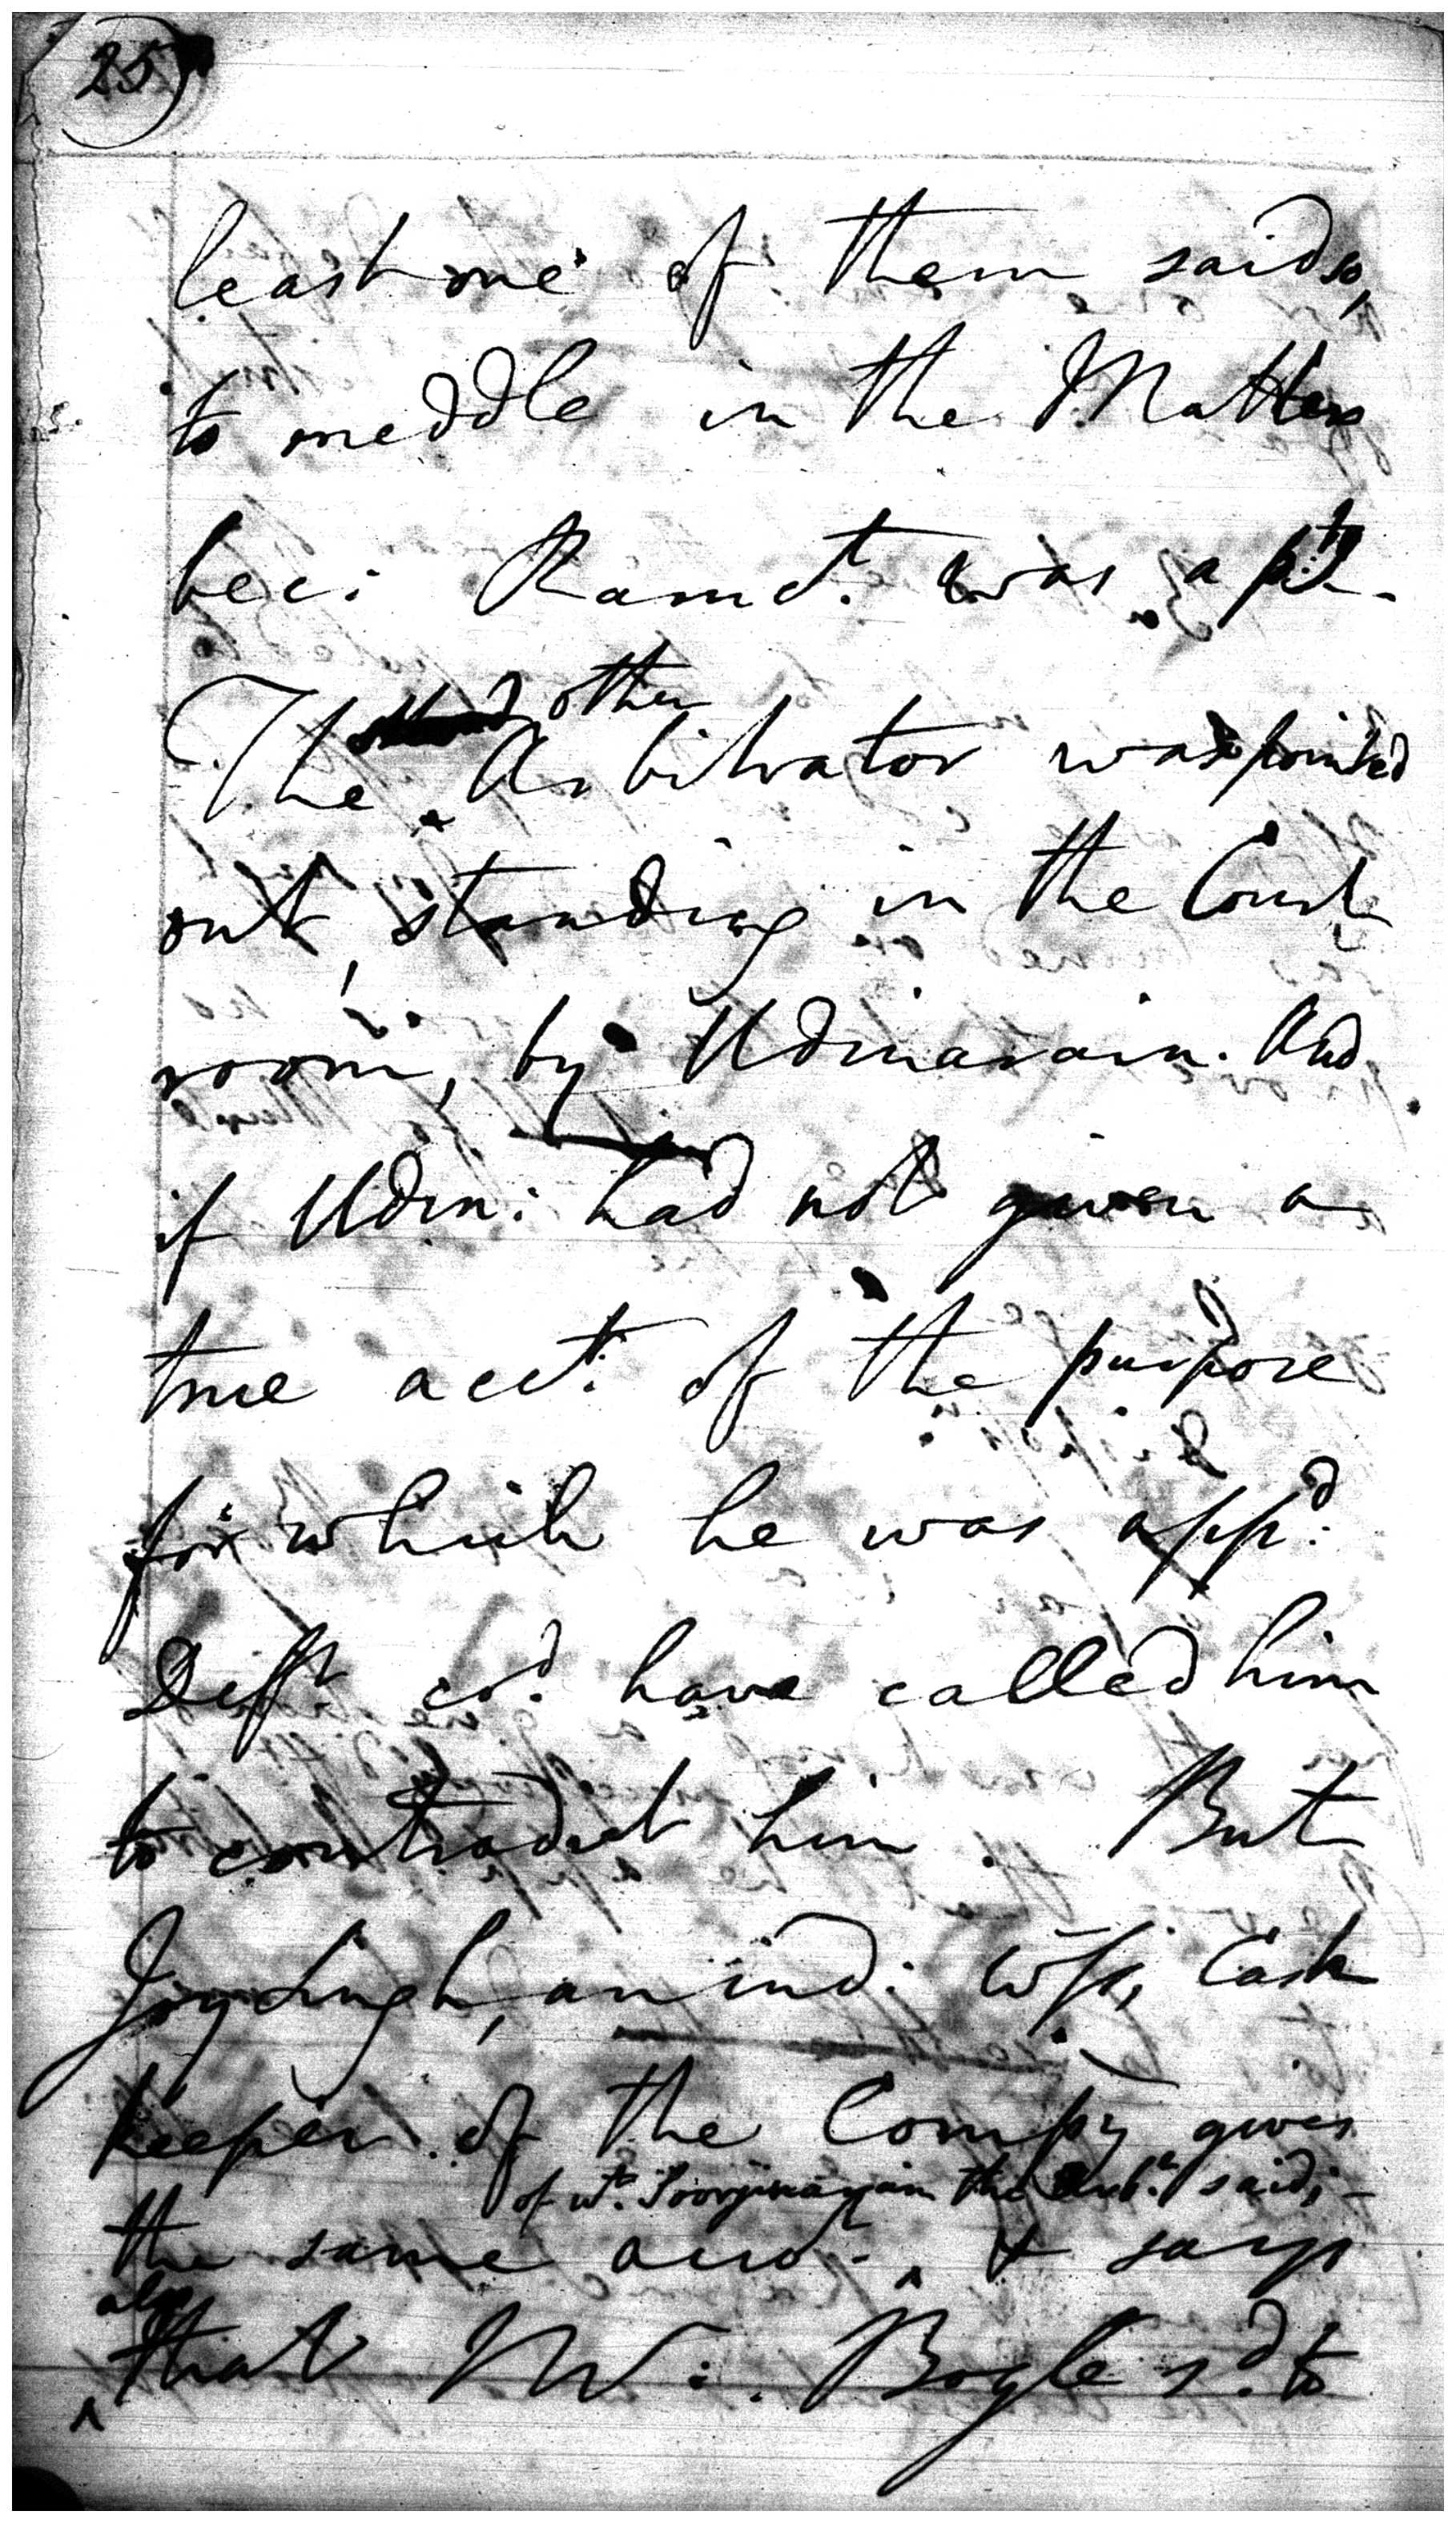 25)
least one of them said so,
to meddle in the Matter
bec: Ramct. was a pty.
The other Arbitrator was pointed
out, standing in the Court
room, by Udinarain. And
if Udin: had not given a
true acct. of the purpose
for which he was appd.
Deft. cd. have called him
to contradict him. But
Joysingh, an ind: Wss, Cash
keeper of the Compy gives
of wt. Soorjinarain the Arbr. said; -
the same acco - ^ & says
also
^ that Mr. Bogle sd. to